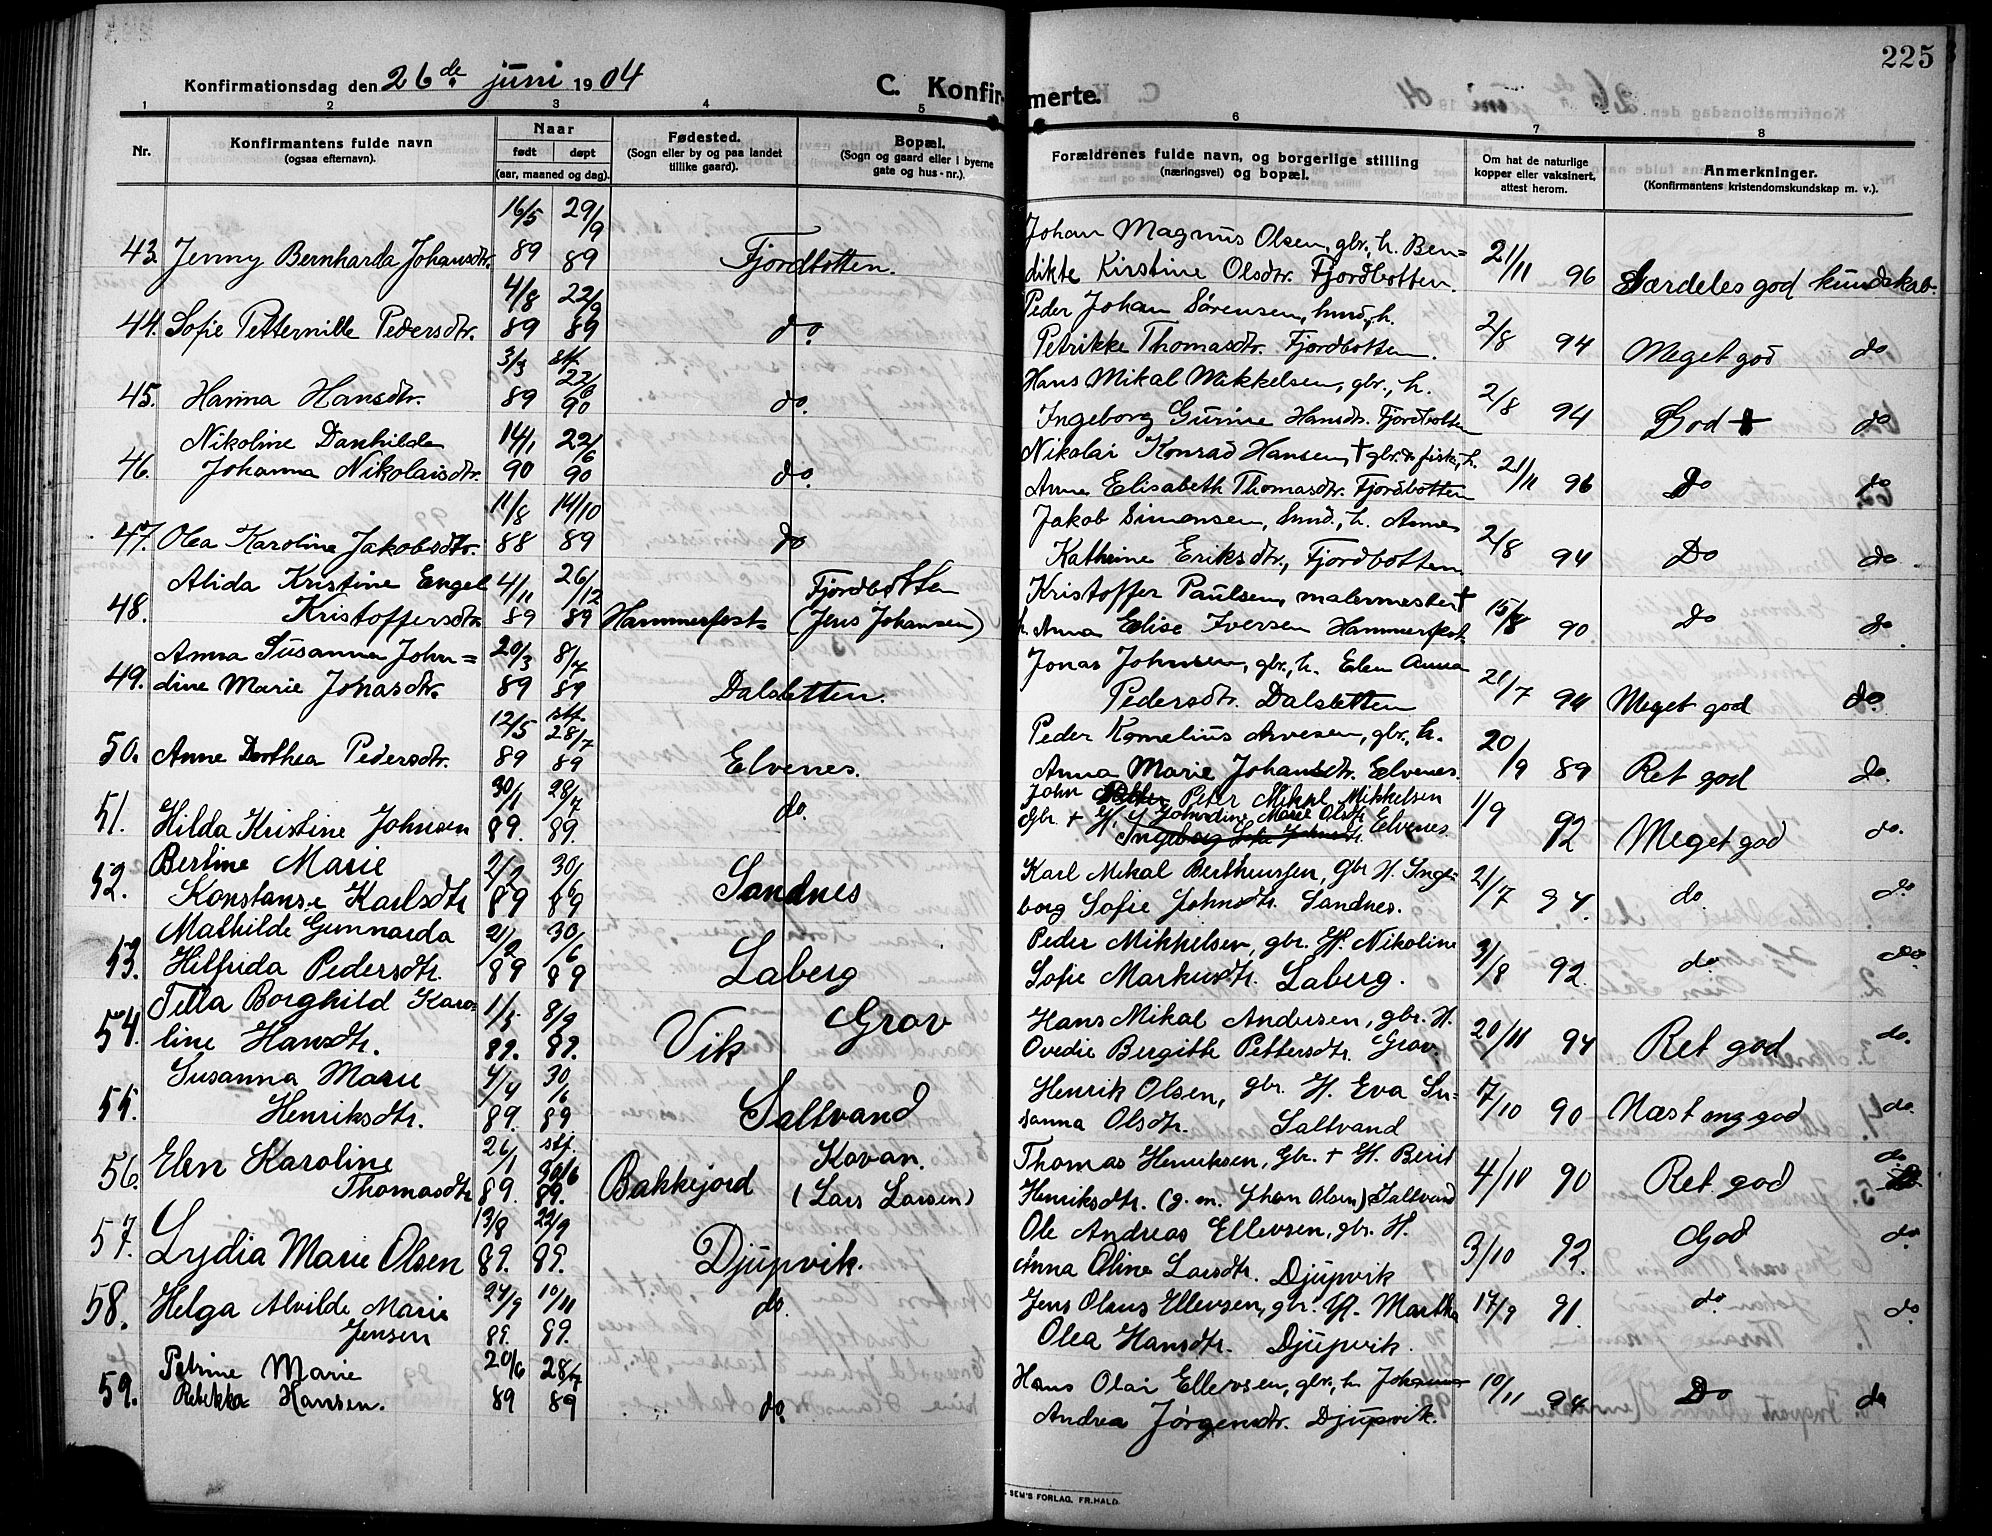 225
Konfirmationsdag den 26de juni 1904
C. Konfirmerte.
1 2 3 4 5 6 7 8
Nr.
Konfirmantens fulde navn
(ogsaa efternavn).
Naar
født døpt
(aar, maaned og dag).
Fødested.
(Sogn eller by og paa landet
tillike gaard).
Bopæl.
(Sogn og gaard eller i byerne
gate og hus-nr.).
Forældrenes fulde navn, og borgerlige stilling
(næringsvei) og bopæl.
Om hat de naturlige
kopper eller vaksinert,
attest herom.
Anmerkninger.
(Konfirmantens kristendomskundskap m. v.).
16/5 29/9 Johan Magnus Olsen, gbr., h. Ben=
43. Jenny Bernharda Johansdtr. 89 89 Fjordbotten. dikte Kirstine Olsdtr. Fjordbotten. 21/11 96 Særdeles god kundskab.
4/8 22/9 Peder Johan Sørensen, husm., h.
44. Sofie Petternille Pedersdtr. 89 89 do. Petrikke Thomasdtr. Fjordbotten. 2/8 94 Meget god do
3/3 stf. 22/6 Hans Mikal Mikkelsen, gbr., h.
45. Hanna Hansdtr. 89 90 do. Ingeborg Gurine Hansdtr. Fjordbotten 2/8 94 God + do
Nikoline Danhilda 14/1 22/6 Nikolai Konrad Hansen, † gbr. & fisk., h.
46. Johanna Nikolaisdtr. 90 90 do. Anne Elisabeth Thomasdtr. Fjordbotten 21/11 96 Do do
11/8 14/10 Jakob Simonsen, Smd., h. Anne
47. Olea Karoline Jakobsdtr. 88 89 do Kathrine Eriksdtr., Fjordbotten. 2/8 94 Do do
Alida Kristine Engel 4/11 26/12 Fjordbotten Kristoffer Paulsen, malermester †
48. Kristoffersdtr. 89 89 Hammerfest (Jens Johansen) h. Anna Elise Iversen Hammerfest. 15/8 90. Do do.
Anna Susanna John= 20/3 8/7 Jonas Johnsen, gbr., h. Elen Anna
49. dine Marie Jonasdtr. 89 89 Dalsletten. Pedersdtr. Dalsletten 21/7 94 Meget god do.
12/5 stf. 28/7 Peder Kornelius Arvesen, gbr., h.
50. Anne Dorthea Pedersdtr. 89 89 Elvenes. Anna Marie Johansdtr. Elvenes. 20/9 89 Ret god do.
30/1 28/7 do. John Peter Mikal Mikkelsen
51. Hilda Kristine Johnsen 89. 89. Gbr. + H. Johndine Marie Olsdtr Elvenes. 1/9 92 Meget god do.
Ingeborg Sofie Johnsdtr.
Bertine Marie 2/2 30/6 Karl Mikal Bertheussen, Gbr H. Inge-
52. Konstanse Karlsdtr 89 89 Sandnes borg Sofie Johnsdtr. Sandnes. 21/7 94. do. do
Mathilde Gunnarda 21/2 30/6 Peder Mikkelsen, gbr. H. Nikoline
53. Hilfrida Pedersdtr. 89 89 Laberg Sofie Markusdtr. Laberg. 3/8 92. do. do.
Tella Borghild Karo- 1/5 8/9 Grov Hans Mikal Andersen, gbr. H.
54. line Hansdtr. 89. 89. Vik Ovedie Bergithe Pettersdtr. Grov. 20/11 94 Ret god do.
Susanna Marie 4/4 30/6 Henrik Olsen, gbr. H. Eva Su-
55. Henriksdtr. 89. 89. Saltvand sanna Olsdtr. Saltvand 7/10 90 Næst mg. god do.
Elen Karoline 26/1 stf. 30/6 Kovan. Thomas Henriksen, Gbr. + H. Berit
56. Thomasdtr 89. 89. Bakkejord (Lars Larsen) Henriksdtr. (g. m. Johan Olsen) Saltvand 4/10 90 Ret god do
13/8 22/9 Ole Andreas Ellevsen, gbr. H.
57. Lydia Marie Olsen 89. 89. Djupvik. Anna Oline Larsdtr. Djupvik 3/10 92. God do.
58. Helga Alvilde Marie 24/9 10/11 do. Jens Olaus Ellevsen, gbr. H. Martha 17/9 91. do. do
Jensen 89. 89. Olea Hansdtr. Djupvik.
Petrine Marie 20/6 28/7 Hans Olai Ellevsen, gbr., h. Johanna
59. Rebekka Hansen. 89 89 do. Andrea Jørgensdtr. Djupvik. 10/11 94 Do do
SEM'S FORLAG, FR.HALD.